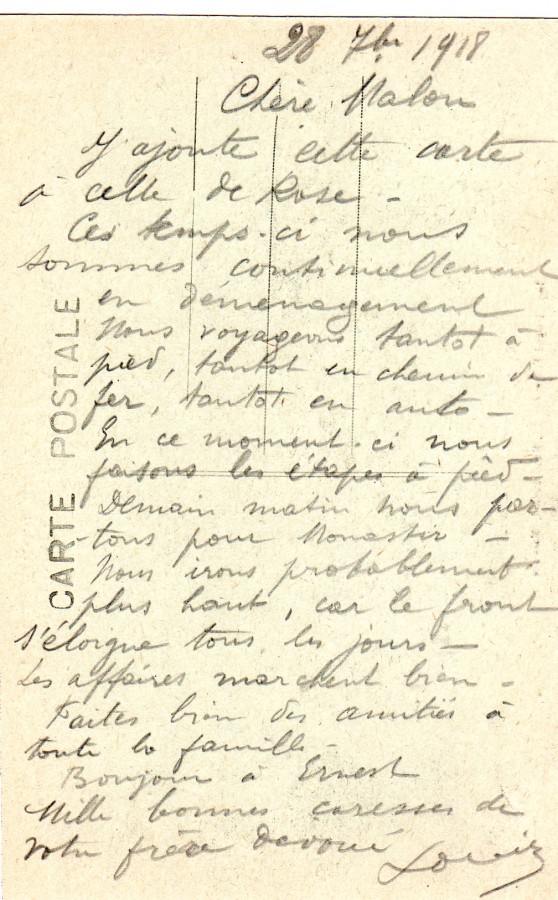 28 7bre 1918
Chère Malou
J'ajoute cette carte
à celle de Rose -
Ces temps-ci nous
sommes continuellement
en déménagement
Nous voyageons tantôt à
pied, tantôt en chemin de
fer, tantôt en auto -
En ce moment-ci nous
faisons les étapes à pied -
Demain matin nous par-
-tons pour Monastir -
Nous irons probablement
plus haut, car le front
s'éloigne tous les jours -
Les affaires marchent bien -
Faites bien des amitiés à
toute la famille -
Bonjour à Ernest
Mille bonnes caresses de
votre frère dévoué
Louis
CARTE POSTALE